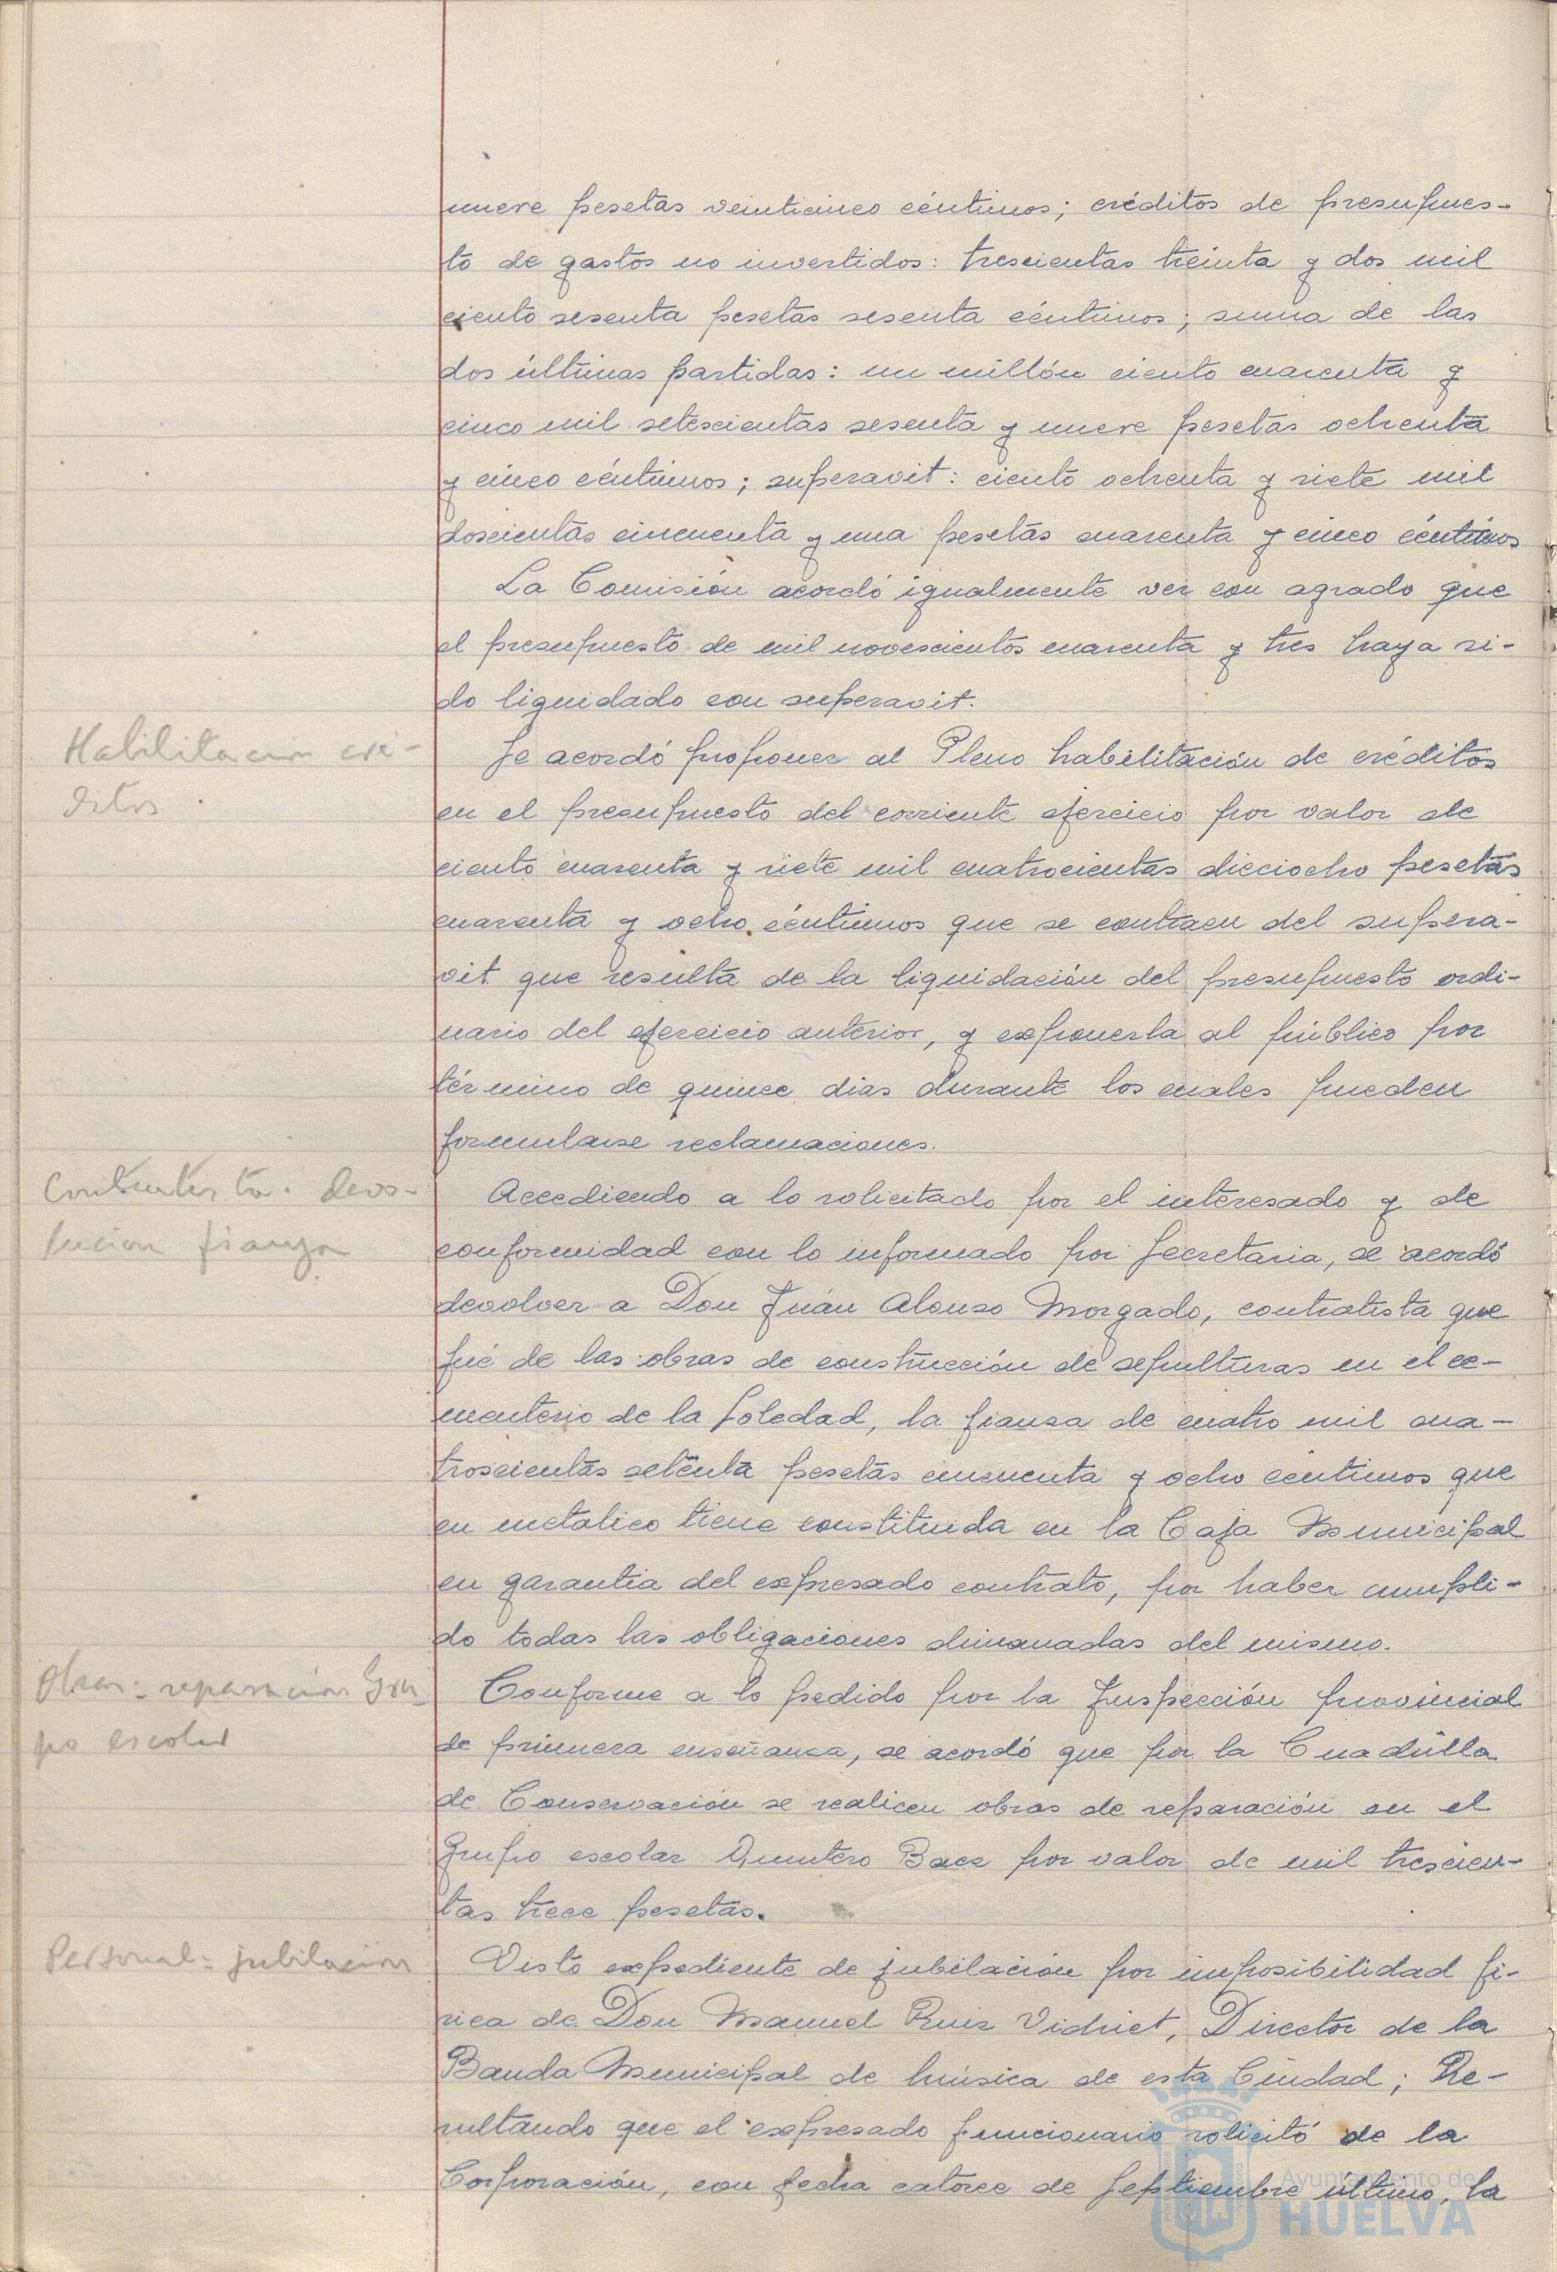 nueve pesetas veinticinco céntimos; créditos de presupues-
to de gastos no invertidos: trescientas treinta y dos mil
ciento sesenta pesetas sesenta céntimos; suma de las
dos últimas partidas: un millón ciento cuarenta y
cinco mil setescientas sesenta y nueve pesetas ochenta
y cinco céntimos; superavit: ciento ochenta y siete mil
doscientas cincuenta y una pesetas cuarenta y cinco céntimos
La Comisión acordó igualmente ver con agrado que
el presupuesto de mil novescientos cuarenta y tres haya si-
do liquidado con superavit.
Habilitacion cré-
ditos
Se acordó proponer al Pleno habilitación de créditos
en el presupuesto del corriente ejercicio por valor de
ciento cuarenta y siete mil cuatrocientas dieciocho pesetas
cuarenta y ocho céntimos que se contraen del supera-
vit que resulta de la liquidación del presupuesto ordi-
nario del ejercicio anterior, y exponerla al público por
término de quince dias durante los cuales pueden
formularse reclamaciones.
devo-
lucion fianza
Accediendo a lo solicitado por el interesado y de
conformidad con lo informado por Secretaria, se acordó
devolver a Don Juán Alonso Morgado, contratista que
fué de las obras de construcción de sepulturas en el ce-
menterio de la Soledad, la fianza de cuatro mil cua-
troscientas setenta pesetas cincuenta y ocho centimos que
en metalico tiene constituida en la Caja Municipal
en garantia del expresado contrato, por haber cumpli-
do todas las obligaciones dimanadas del mismo.
Obras: reparacion Gru-
po escolar
Conforme a lo pedido por la Inspección provincial
de primera enseñanza, se acordó que por la Cuadrilla
de Conservación se realicen obras de reparación en el
Grupo escolar Quintero Baez por valor de mil trescien-
tas trece pesetas.
Personal: jubilacion
Visto expediente de jubilación por imposibilidad fi-
sica de Don Manuel Ruiz Vidriet, Director de la
Banda Municipal de música de esta Ciudad; Re-
sultando que el expresado funcionario solicitó de la
Corporación, con fecha catorce de Septiembre último, la
Ayuntamiento de
HUELVA